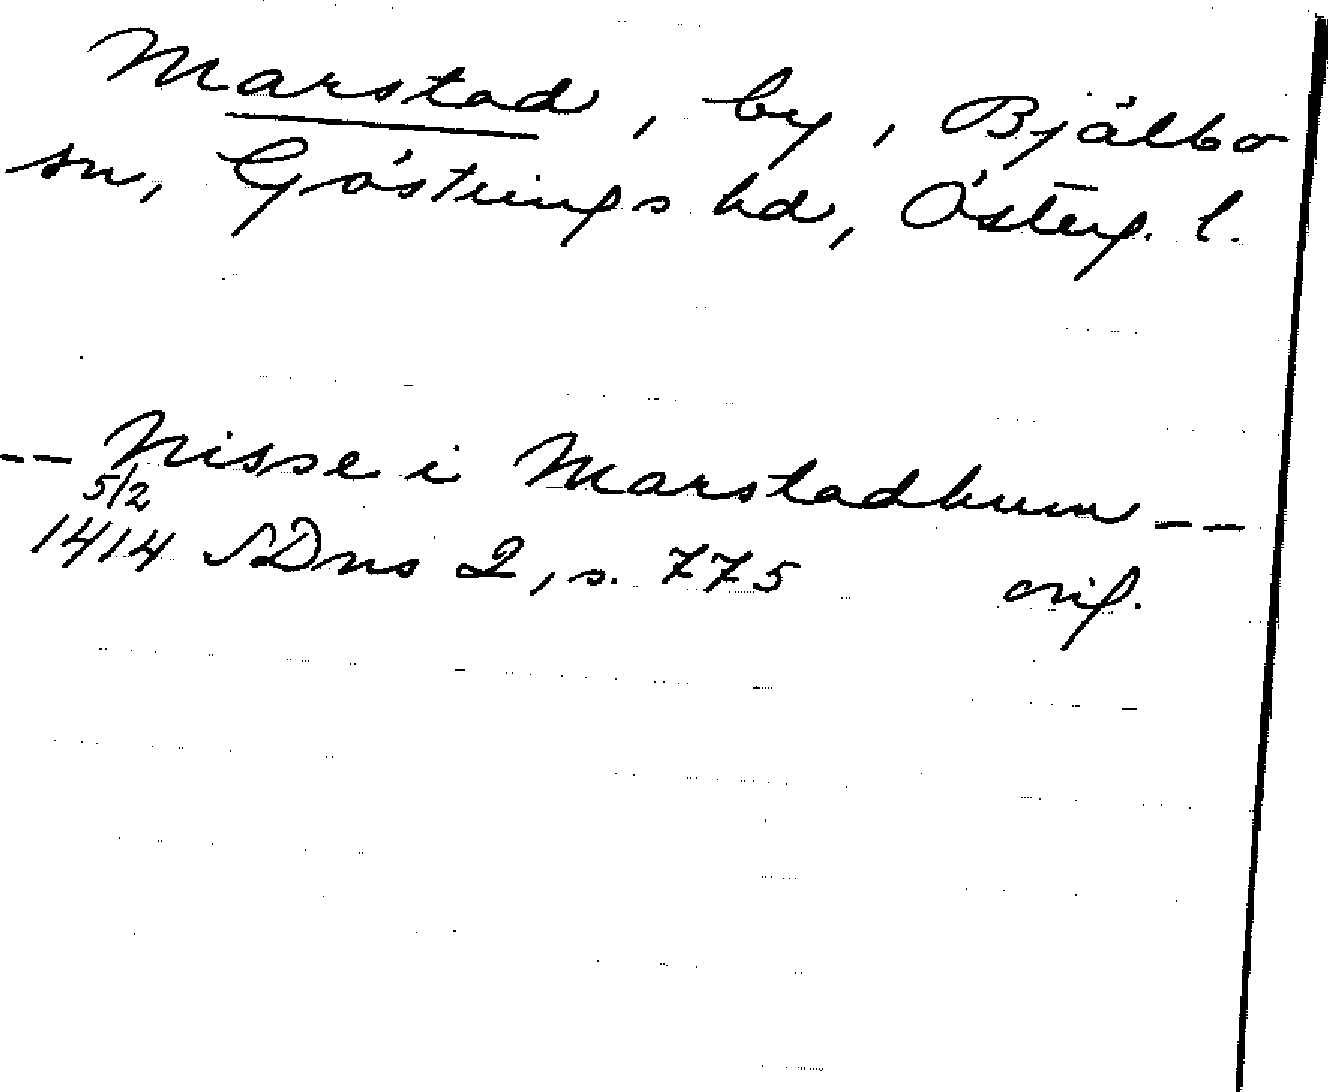 Marstad, by, Bjälbo
sn, Göstrings hd, Österg. l.
-- Nisse i Marstadhum --
5/2
1414 SDns 2, s. 775 orig.